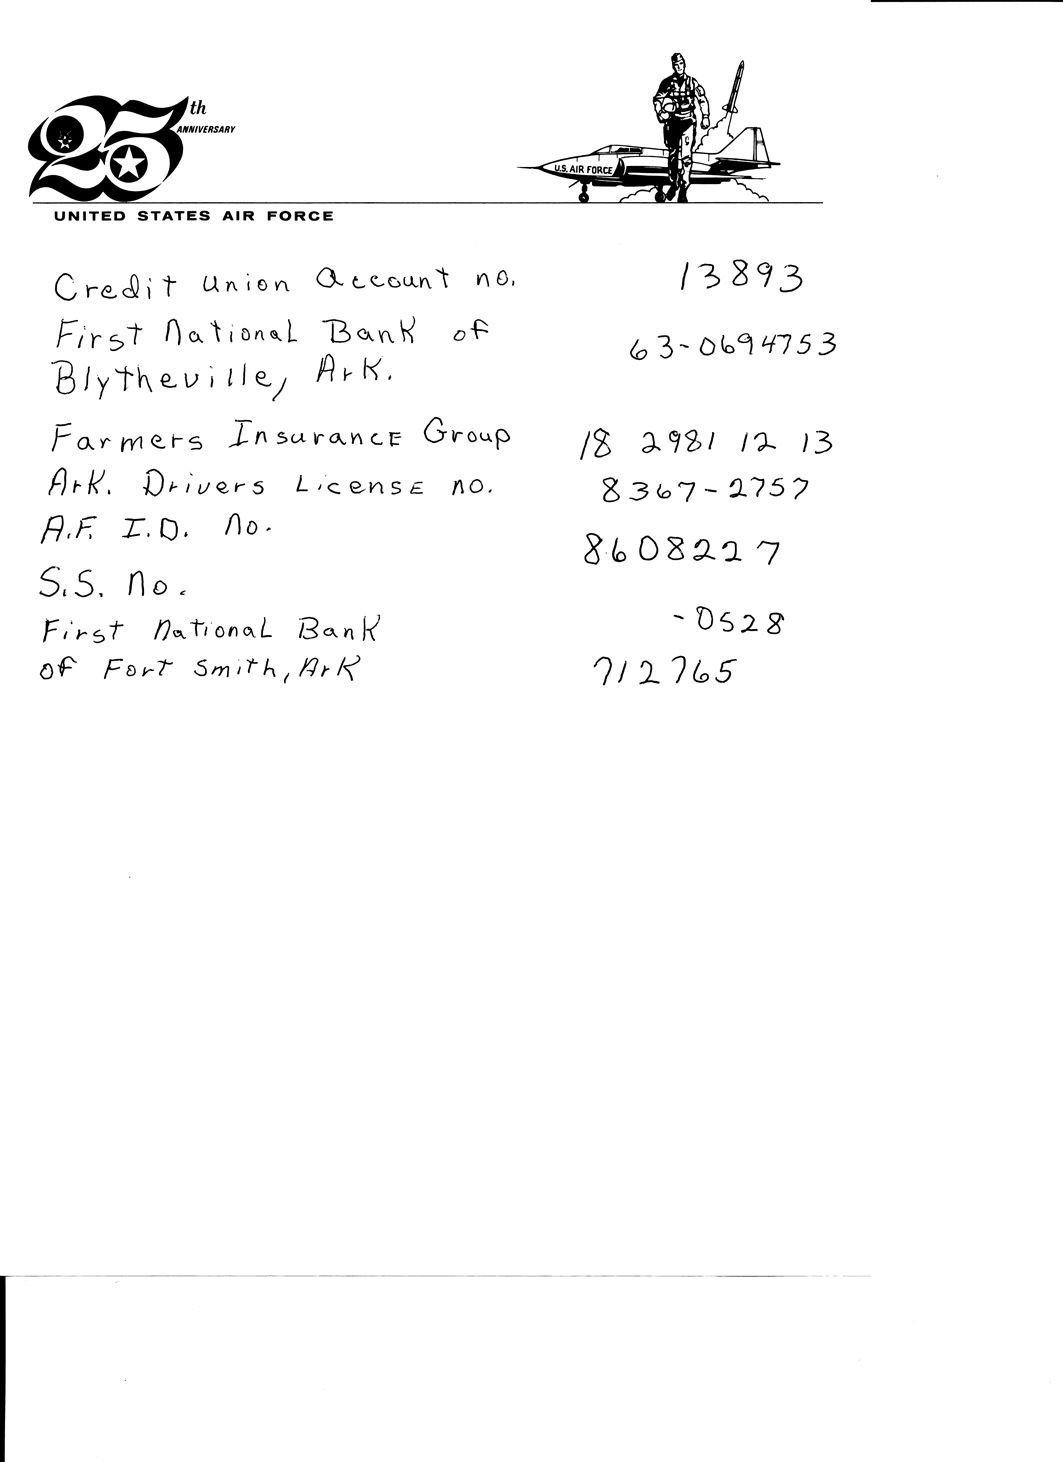 25th
ANNIVERSARY
U.S. AIR FORCE
UNITED STATES AIR FORCE
Credit Union Account no. 13893
First National Bank of
Blytheville, Ark. 63-0694753
Farmers Insurance Group 18 2981 12 13
Ark. Drivers License no. 8367-2757
A.F. I.D. No. 8608227
S.S. No. -0528
First National Bank
of Fort Smith, Ark 712765